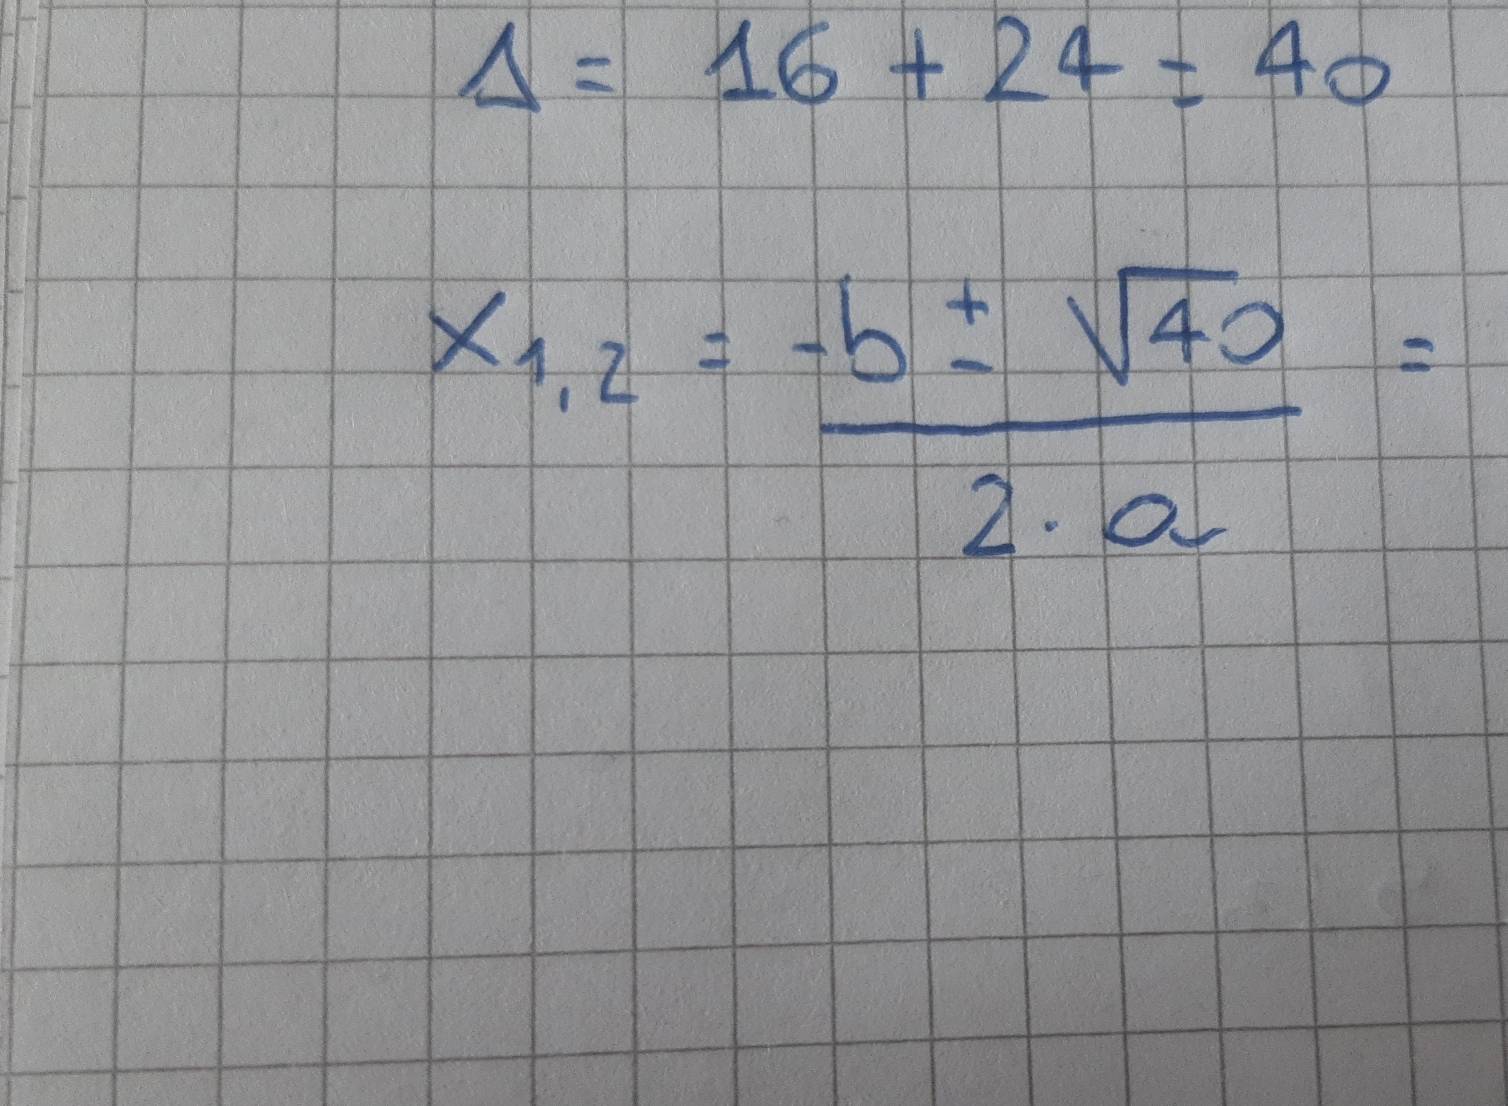 Δ = 16 + 24 = 40
x₁,₂ = -b ± √40 =
2 · a